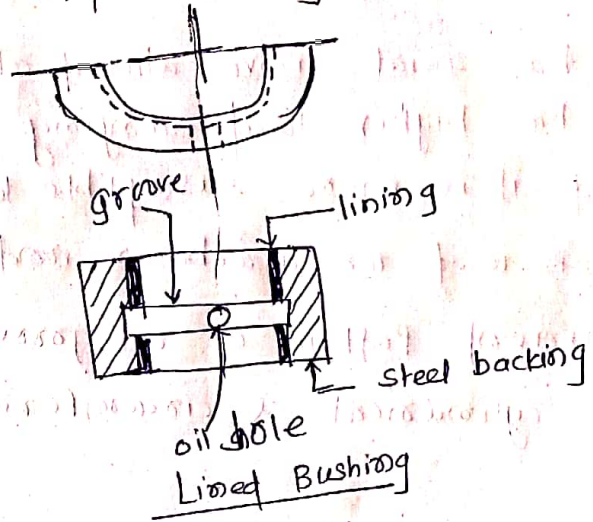 groove
lining
steel backing
oil hole
Lined Bushing